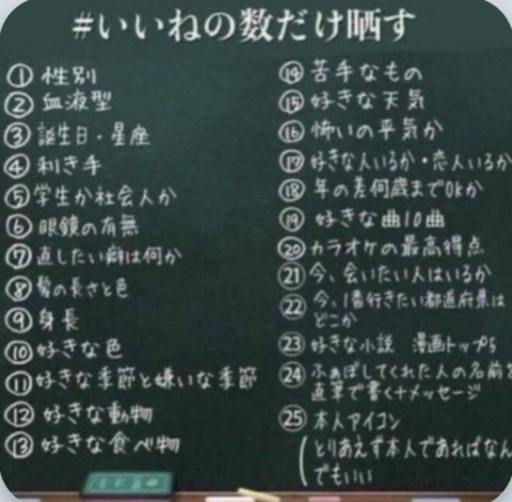 #いいねの数だけ晒す
① 性別
② 血液型
③ 誕生日・星座
④ 利き手
⑤ 学生か社会人か
⑥ 眼鏡の有無
⑦ 直したい癖は何か
⑧ 髪の長さと色
⑨ 身長
⑩ 好きな色
⑪ 好きな季節と嫌いな季節
⑫ 好きな動物
⑬ 好きな食べ物
⑭ 苦手なもの
⑮ 好きな天気
⑯ 怖いの平気か
⑰ 好きな人いるか・恋人いるか
⑱ 年の差何歳までOKか
⑲ 好きな曲10曲
⑳ カラオケの最高得点
㉑ 今、会いたい人はいるか
㉒ 今、1番行きたい都道府県は
どこか
㉓ 好きな小説 漫画トップ5
㉔ ふぁぼしてくれた人の名前を
直筆で書く+メッセージ
㉕ 本人アイコン
(とりあえず本人であればなん
でもいい